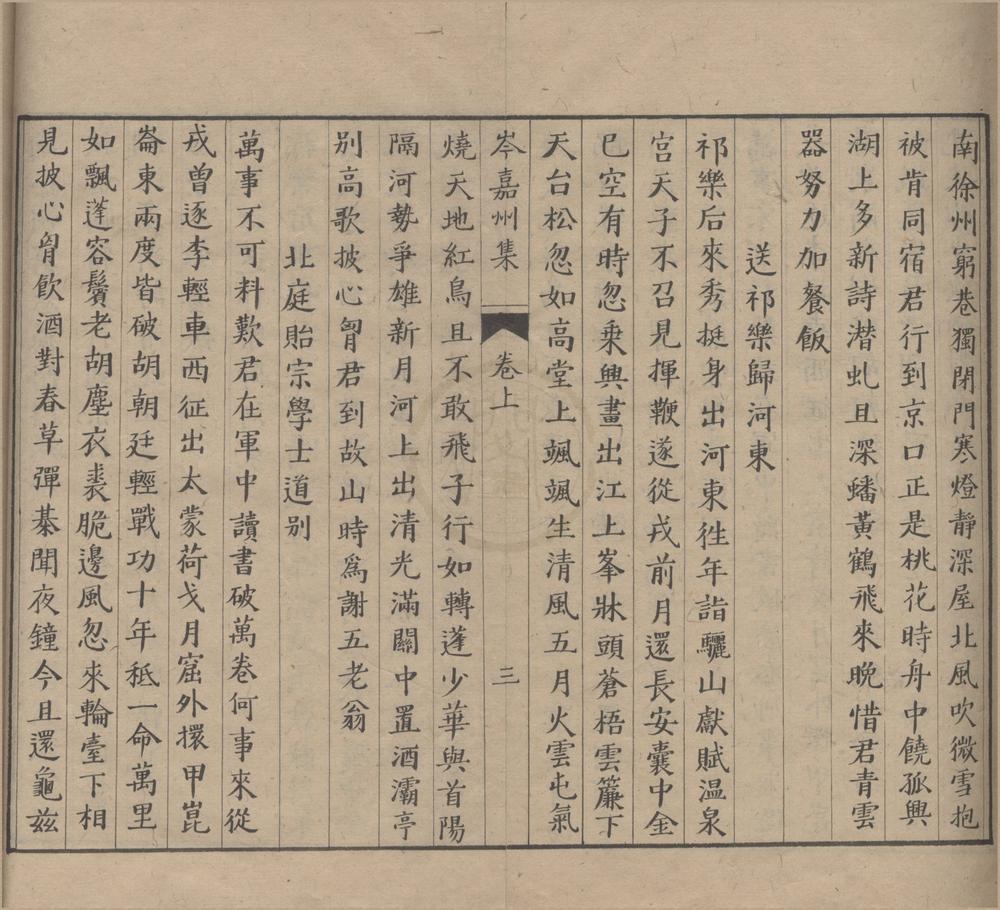 南徐州窮巷獨閉門寒燈靜深屋北風吹微雪抱
被肯同宿君行到京口正是桃花時舟中饒孤興
湖上多新詩潛虬且深蟠黃鶴飛來晚惜君青雲
器努力加餐飯
送祁樂歸河東
祁樂后來秀挺身出河東徃年詣驪山獻賦温泉
宮天子不召見揮鞭遂從戎前月還長安囊中金
已空有時忽乗興畫出江上峯牀頭蒼梧雲簾下
天台松忽如高堂上颯颯生清風五月火雲屯氣
岑嘉州集
卷上
三
燒天地紅鳥且不敢飛子行如轉蓬少華與首陽
隔河勢爭雄新月河上出清光滿關中置酒灞亭
别高歌披心胷君到故山時爲謝五老翁
北庭貽宗學士道别
萬事不可料歎君在軍中讀書破萬卷何事來從
戎曾逐李輕車西征出太蒙荷戈月窟外擐甲崑
崙東兩度皆破胡朝廷輕戰功十年秪一命萬里
如飄蓬容鬢老胡塵衣裘脆邊風忽來輪臺下相
見披心胷飲酒對春草彈棊聞夜鐘今且還龜兹